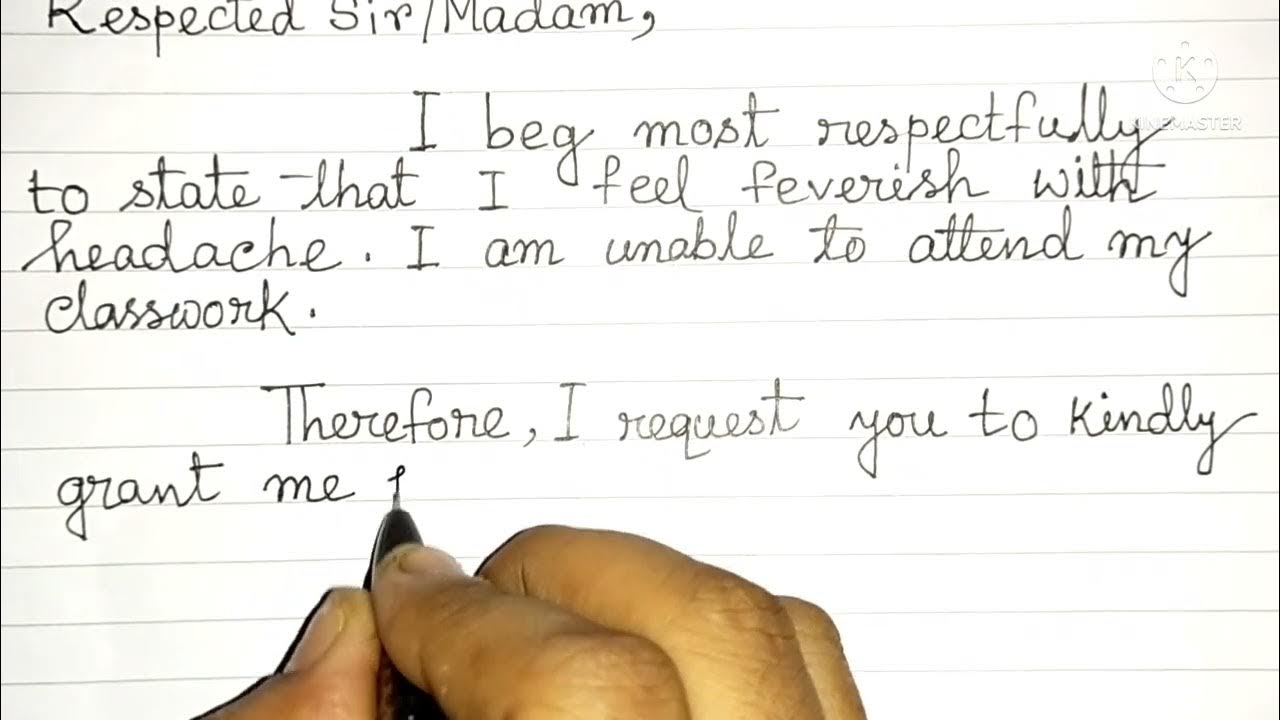 Respected Sir/Madam,
KINEMASTER
I beg most respectfully
to state that I feel feverish with
headache. I am unable to attend my
classwork.
Therefore, I request you to kindly
grant me